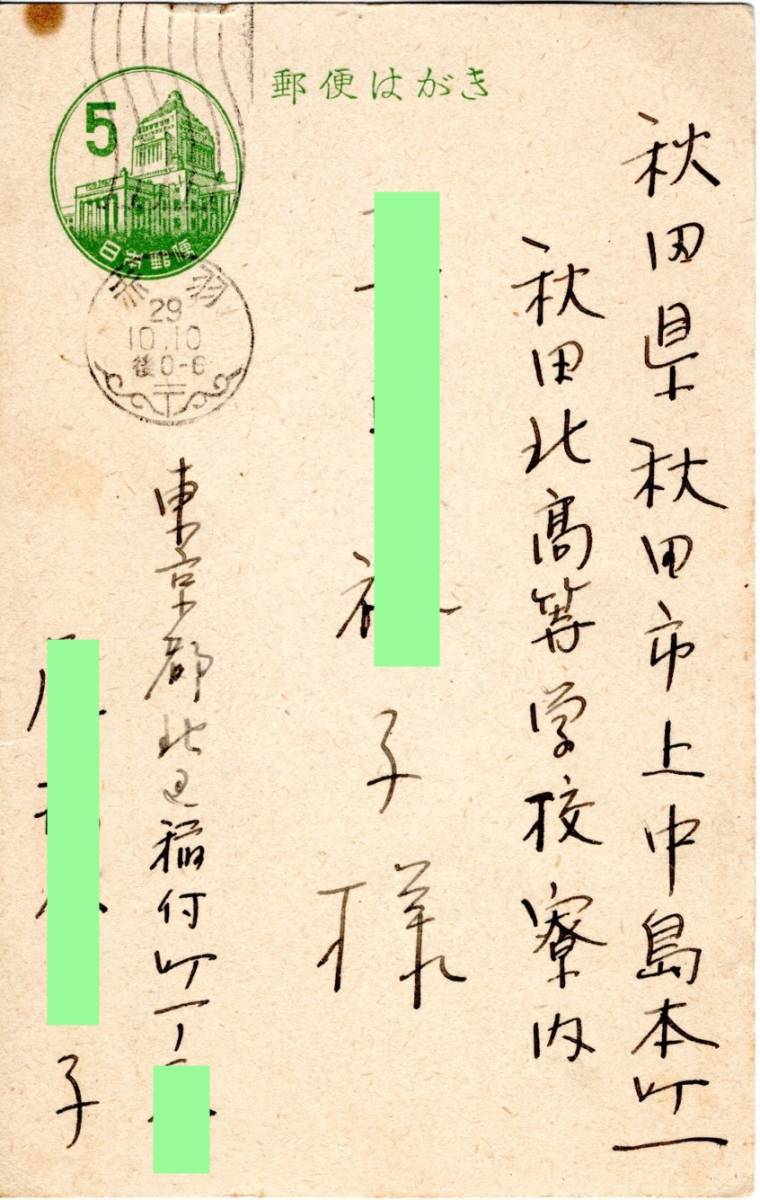 郵便はがき
5
日本郵便
赤羽
29
10.10
後0-6
秋田県秋田市上中島本町一
秋田北高等学校寮内
子様
東京都北区稲付町一ノ
子